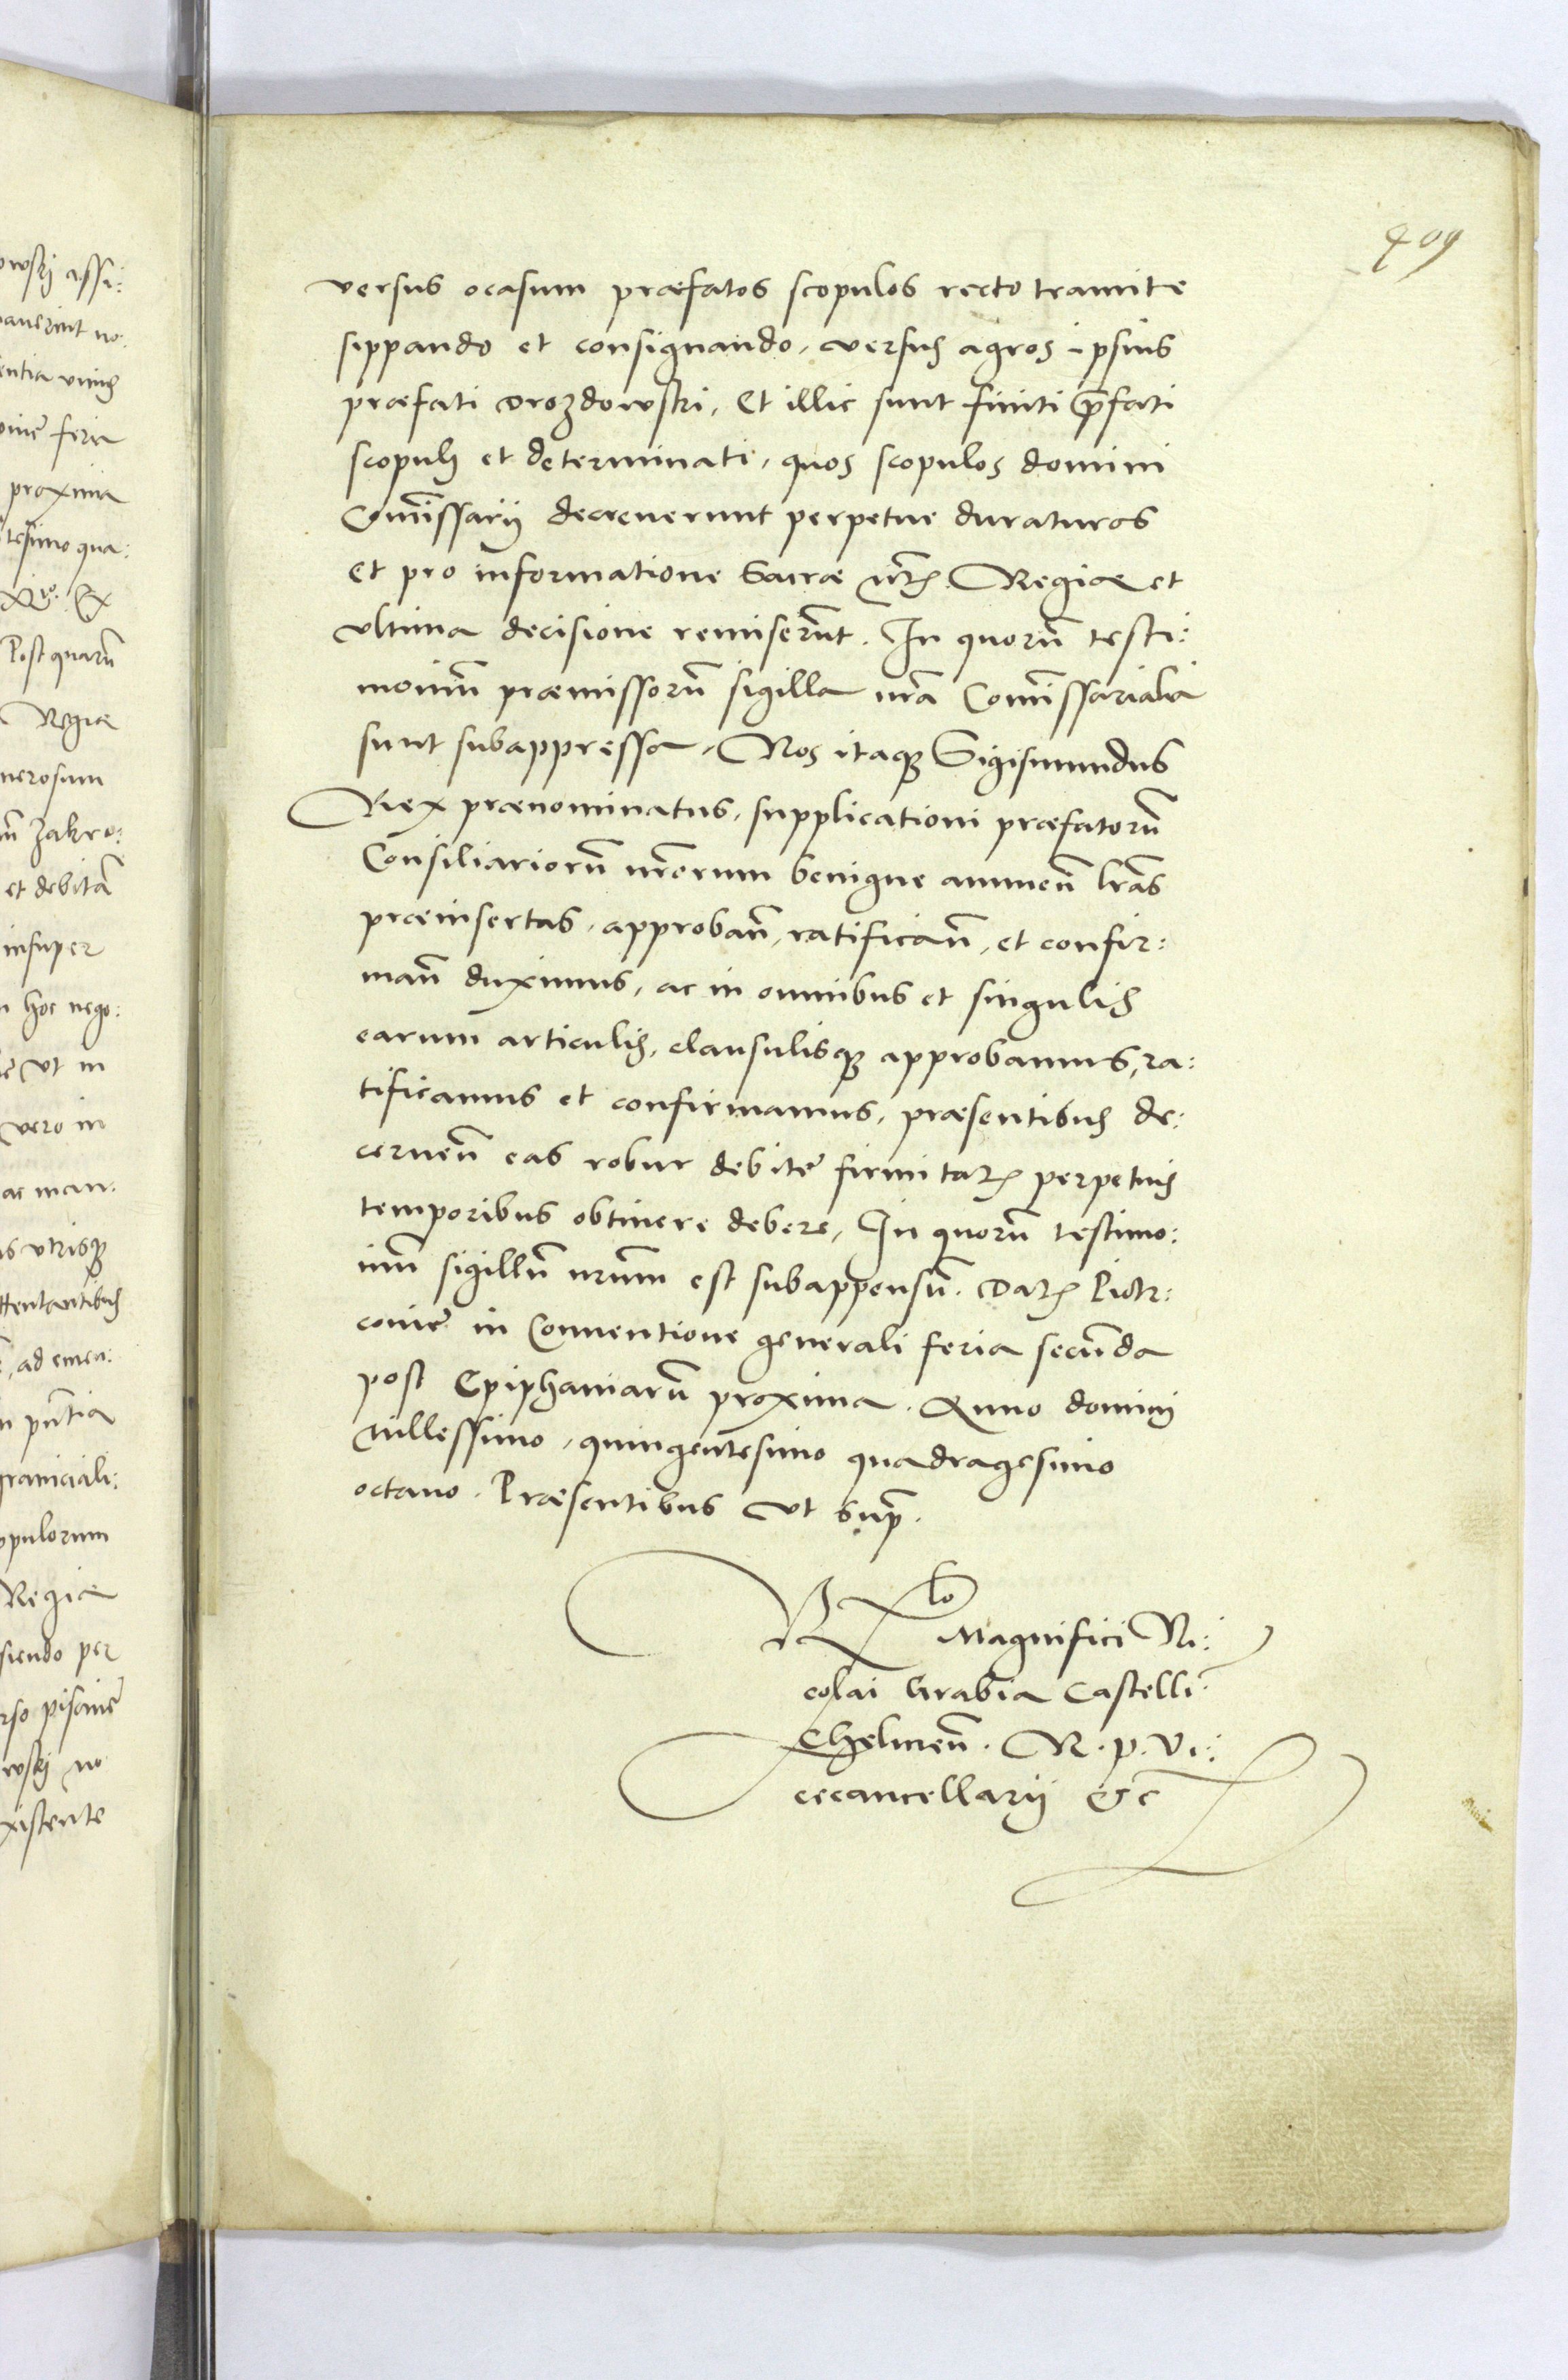 409
versus ocasum præfatos scopulos recto tramite
sippando et consignando, versus agros ipsius
præfati Drozdowski, Et illic sunt finiti p̄fati
scopuli et determinati, quos scopulos domini
Com̄issarij decreuerunt perpetue duraturos
et pro informatione Sacræ Regiæ et
vltima decisione remiserūt. In quorū testi:
moniū præmissorū sigilla nr̄a Com̄issarialia
sunt subappressa. Nos itaq Sigismundus
Rex prænominatus, supplicationi præfatorū
Consiliariorū nr̄orum benigne annuen̄ lr̄as
præinsertas, approban̄, ratifican̄, et confir:
man̄ duximus, ac in omnibus et singulis
earum articulis, clausulisq approbamus, ra:
tificamus et confirmamus, præsentibus de:
cernen̄ eas robur debite firmitat perpetuis
temporibus obtinere debere, In quorū testimo:
niū sigillū nr̄um est subappensū. Dat Piotr:
couie in Conuentione generali feria secūda
post Epiphaniarū proxima. Anno domini
Millessimo, quingentesimo quadragesimo
octauo. Præsentibus vt sup̄.
Rlo Magnifici Ni:
colai Grabia Castelli
Chelmen̄. R. p. Vi:
cecancellarij &c
owskj assi:
auerint no:
entia vnius
feria
proxima
tesimo qua:
Post quarū
Regiæ
nerosum
Zakro:
et debitā
insuper
hoc nego:
vt in
vero in
ac man:
vtrisq
ttentantibus
ad emen:
pn̄tia
graniciali:
opulorum
Regiæ
siendo per
wskj no
xistente